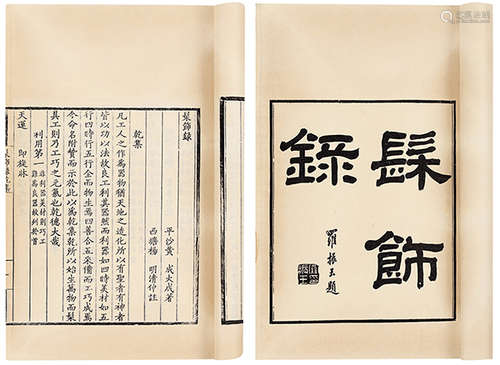 髤飾
錄
羅振玉題
髤飾錄
平沙黃 成大成著
西塘楊 明清仲註
乾集
凡工人之作為器物猶天地之造化所以有聖者有神者
皆以功以法故良工利其器然而利器如四時美材如五
行四時行五行全而物生焉四善合五采備而工巧成焉
今命名附贊而示於此以為乾集乾所以始生萬物而髤
具工則乃工巧之元氣也乾德大哉
利用第一 非利器美材則巧工
難為良器故列於首
天運 即旋牀